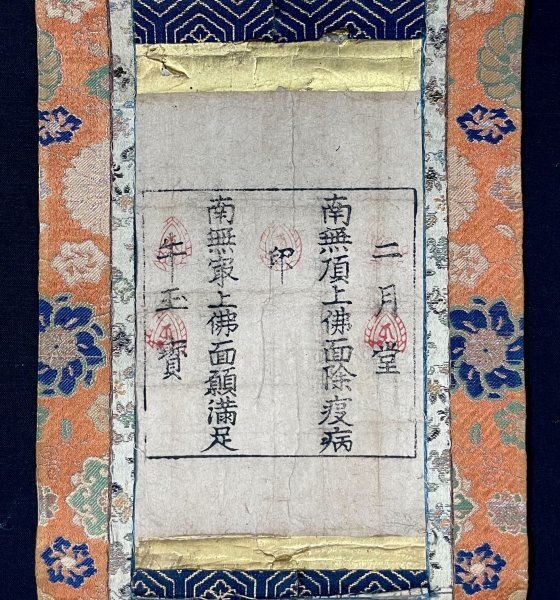 二月堂
南無頂上佛面除疫病
印
南無㝡上佛面願滿足
牛玉寶